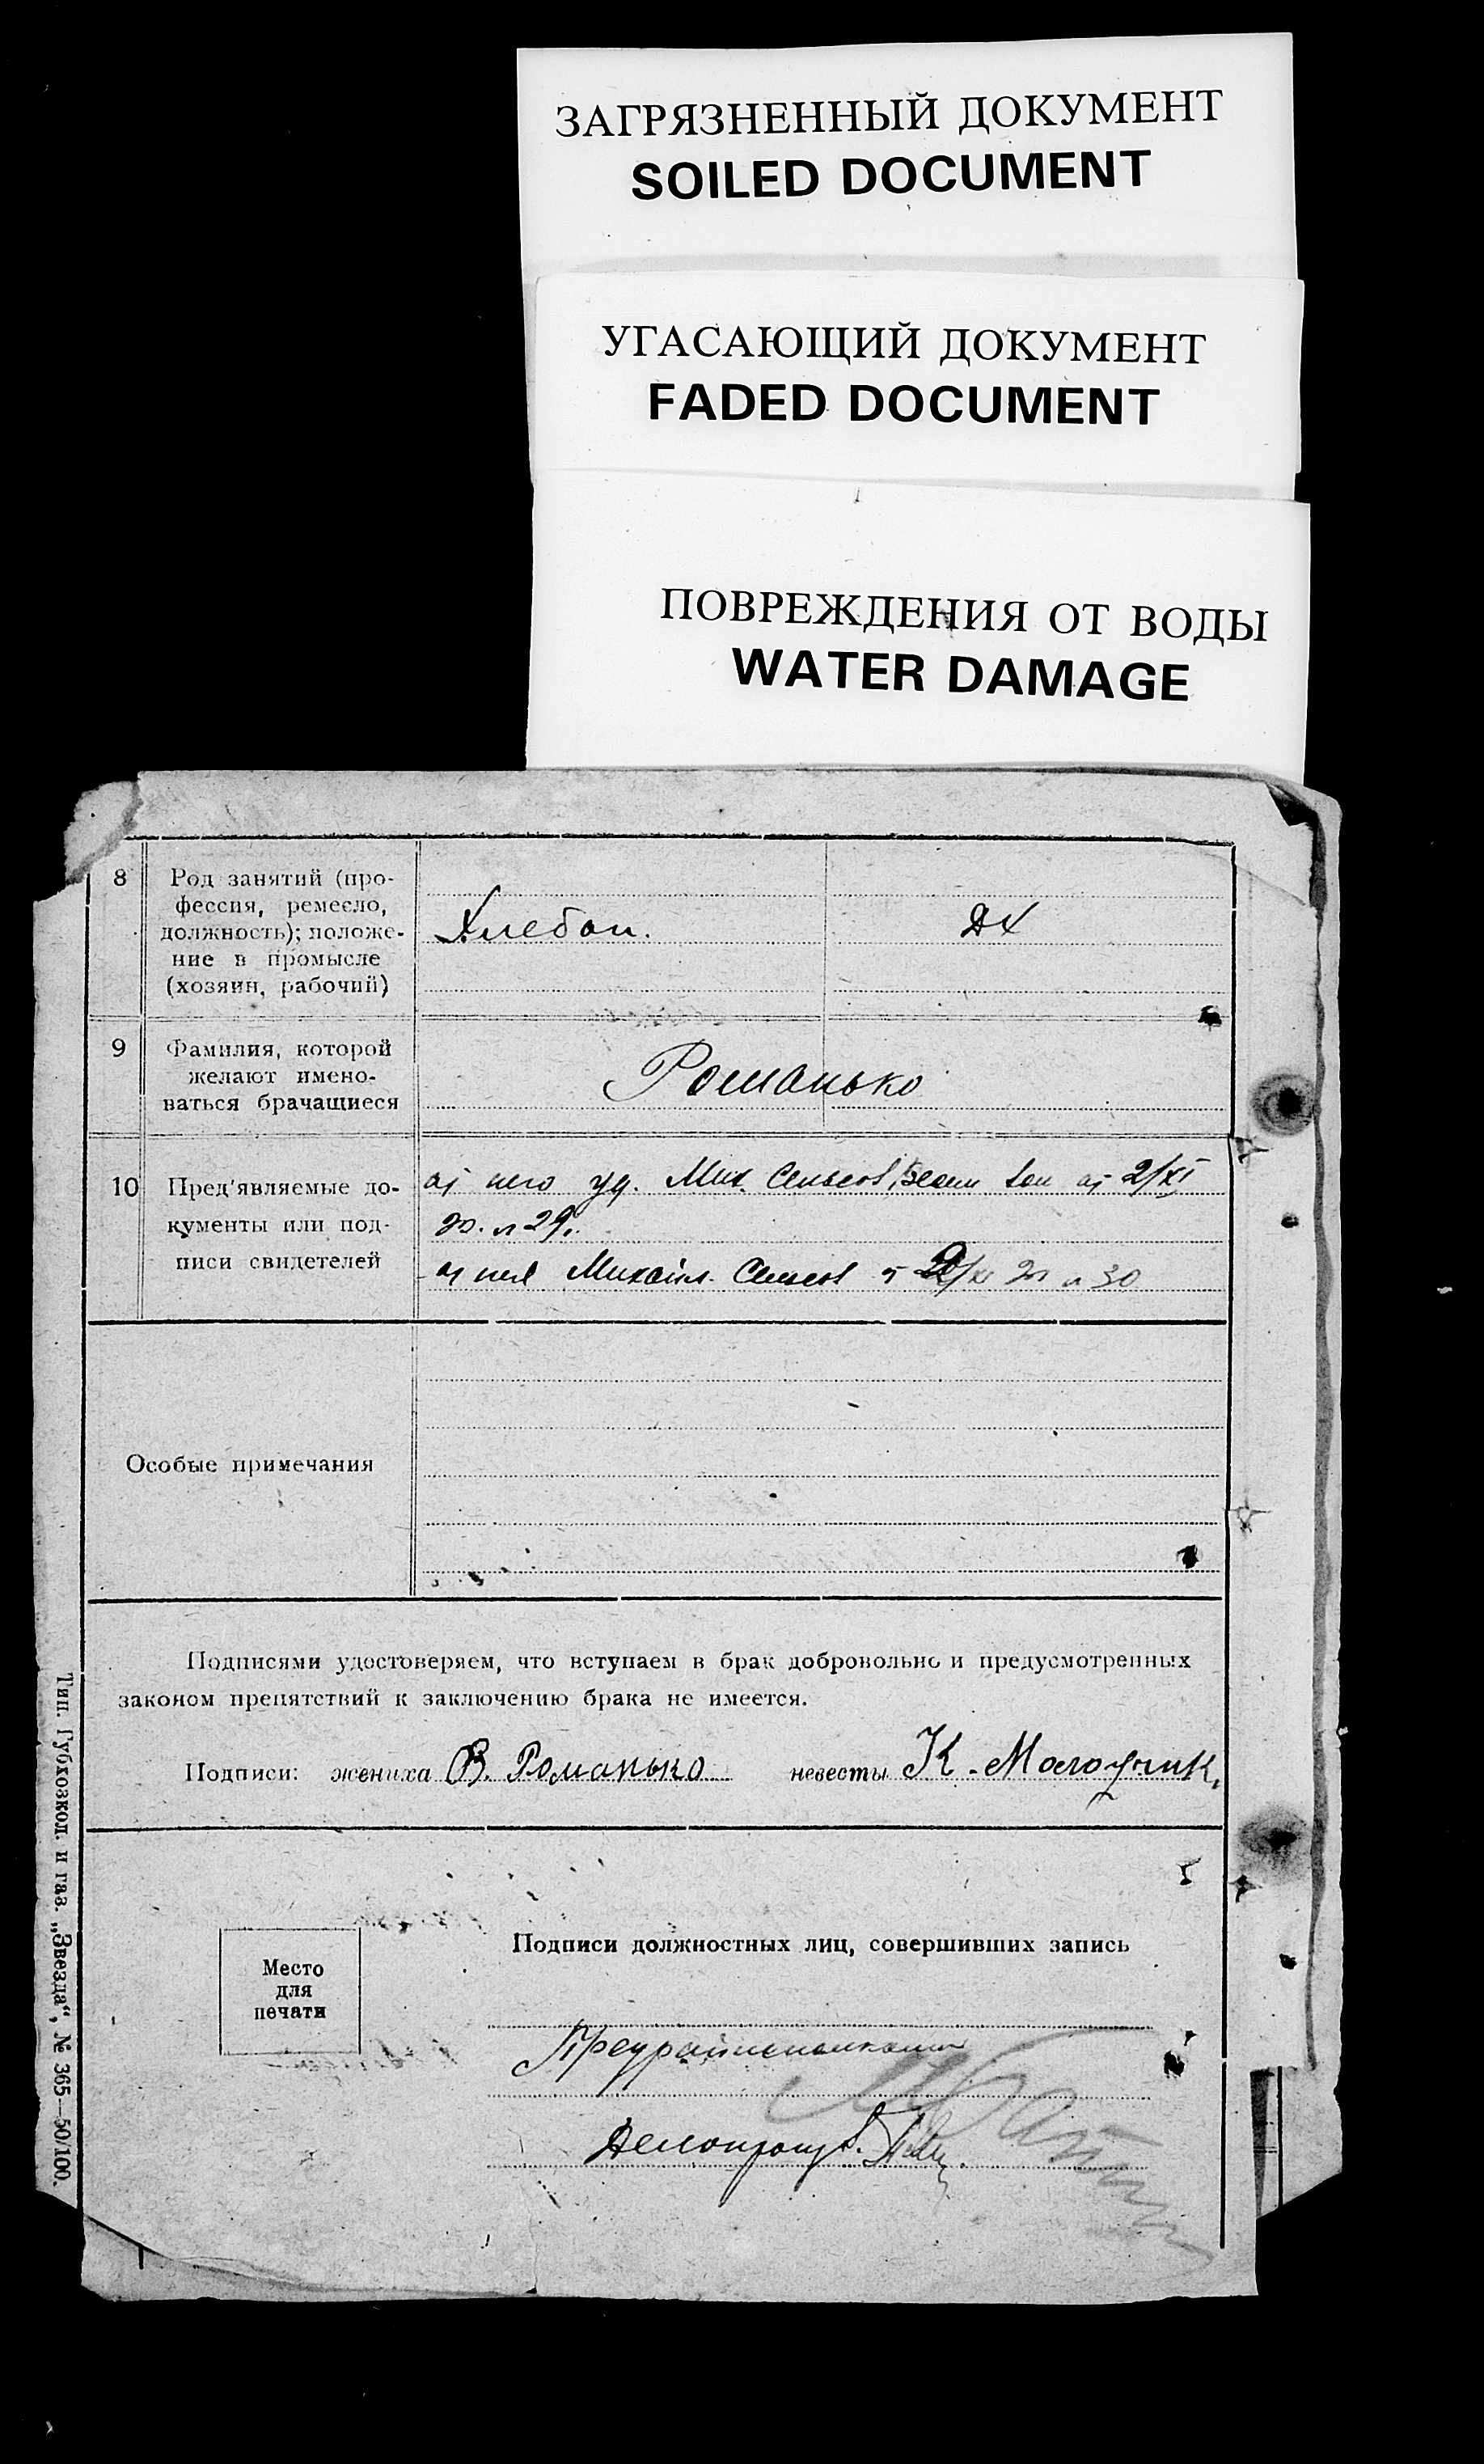 ЗАГРЯЗНЕННЫЙ ДОКУМЕНТ
SOILED DOCUMENT
УГАСАЮЩИЙ ДОКУМЕНТ
FADED DOCUMENT
ПОВРЕЖДЕНИЯ ОТ ВОДЫ
WATER DAMAGE
8
Род занятий (про-
фессия, ремесло,
должность); положе-
ние в промысле
(хозяин, рабочий)
Хлебоп.
ДХ
9
Фамилия, которой
желают имено-
ваться брачащиеся
Романько
10
Пред'являемые до-
кументы или под-
писи свидетелей
от него уд. Мих. Сельсов. от 2/XI
№ 29.
от нея Михайл. Сельсов № 30
Особые примечания
Подписями удостоверяем, что вступаем в брак добровольно и предусмотренных
законом препятствий к заключению брака не имеется.
Подписи: жениха В. Романько невесты К.
Место
для
печати
Подписи должностных лиц, совершивших запись
Предрайисполкома
Делопроизв.
Тип. Губхозкол. и газ. „Звезда“, № 365—50/100.